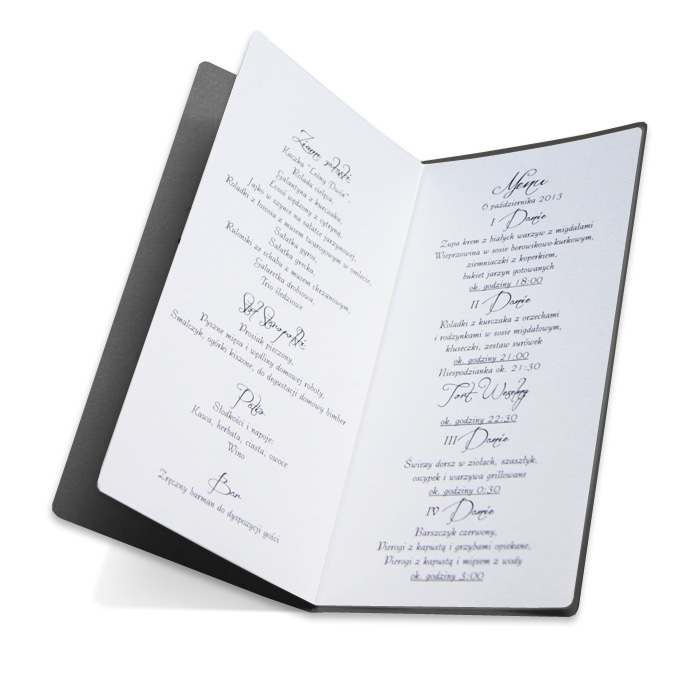 Zimne płatki:
Kaczka "Leśny Duch",
Rolada cielęca,
Galantyna z kurczaka,
Łosoś wędzony z cytryną,
Jajko w szynce na sałatce jarzynowej,
Roladki z łososia z musem twarogowym w omlecie,
Sałatka gyros,
Sałatka grecka,
Ruloniki ze schabu z musem chrzanowym,
Galaretka drobiowa,
Trio śledziowe
Stół Staropolski
Prosiak pieczony,
Pyszne mięsa i wędliny domowej roboty,
Smalczyk, ogórki kiszone, do degustacji domowy bimber
Patera
Słodkości i napoje:
Kawa, herbata, ciasta, owoce
Wino
Bar
Zręczny barman do dyspozycji gości
Menu
6 października 2013
I Danie
Zupa krem z białych warzyw z migdałami
Wieprzowina w sosie borowikowo-kurkowym,
ziemniaczki z koperkiem,
bukiet jarzyn gotowanych
ok. godziny 18:00
II Danie
Roladki z kurczaka z orzechami
i rodzynkami w sosie migdałowym,
kluseczki, zestaw surówek
ok. godziny 21:00
Niespodzianka ok. 21:30
Tort Weselny
ok. godziny 22:30
III Danie
Świeży dorsz w ziołach, szaszłyk,
oscypek i warzywa grillowane
ok. godziny 0:30
IV Danie
Barszczyk czerwony,
Pierogi z kapustą i grzybami opiekane,
Pierogi z kapustą i mięsem z wody
ok. godziny 3:00